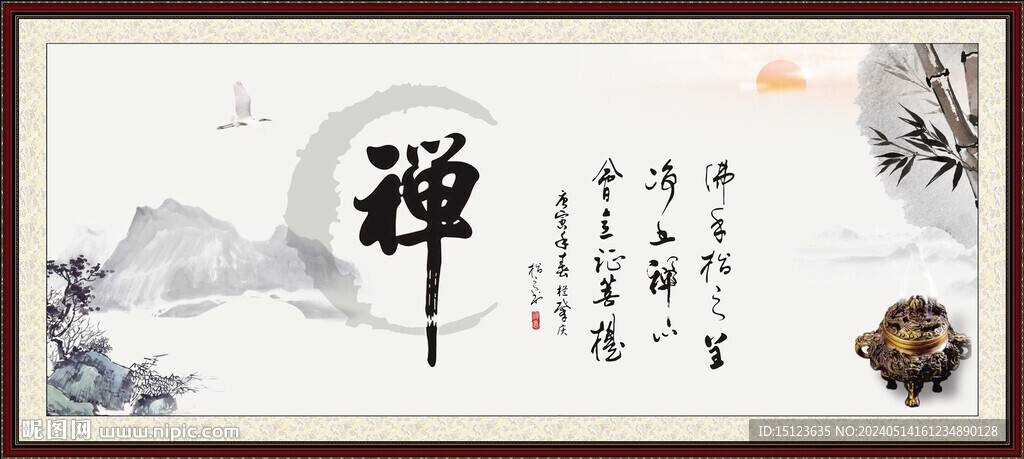 佛手指之呈
净土禪心
會立证菩提
庚寅年春於肇庆
禅
昵图网 www.nipic.com
ID:15123635 NO:20240514161234890128